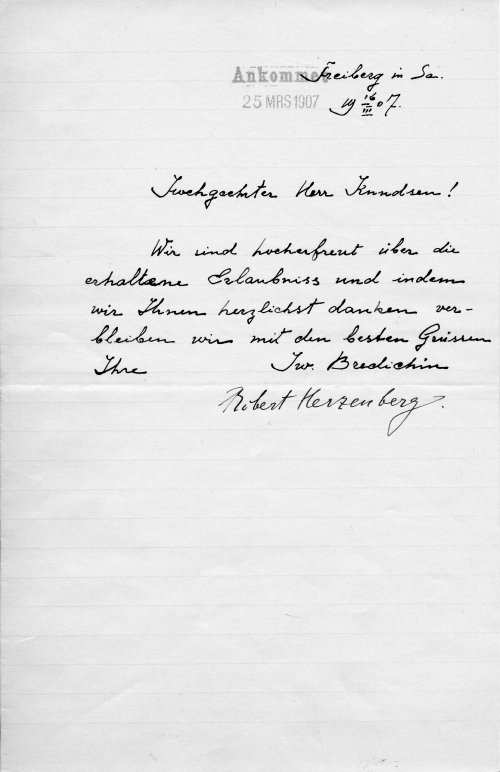 Ankommet
25 MRS 1907
Freiberg in Sa.
19 16/III 07.
Hochgeehrter Herr Knudsen!
Wir sind hocherfreut über die
erhaltene Erlaubniss und indem
wir Ihnen herzlichst danken ver-
bleiben wir mit den besten Grüssen
Ihre Iw. Bredichin
Robert Herzenberg.